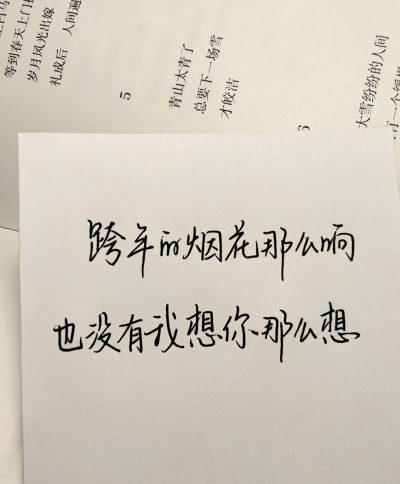 等到春天上门
岁月风光出嫁
礼成后 人间遍
5
青山太青了
总要下一场雪
才皎洁
6
大雪纷纷的人间
跨年的烟花那么响
也没有我想你那么想